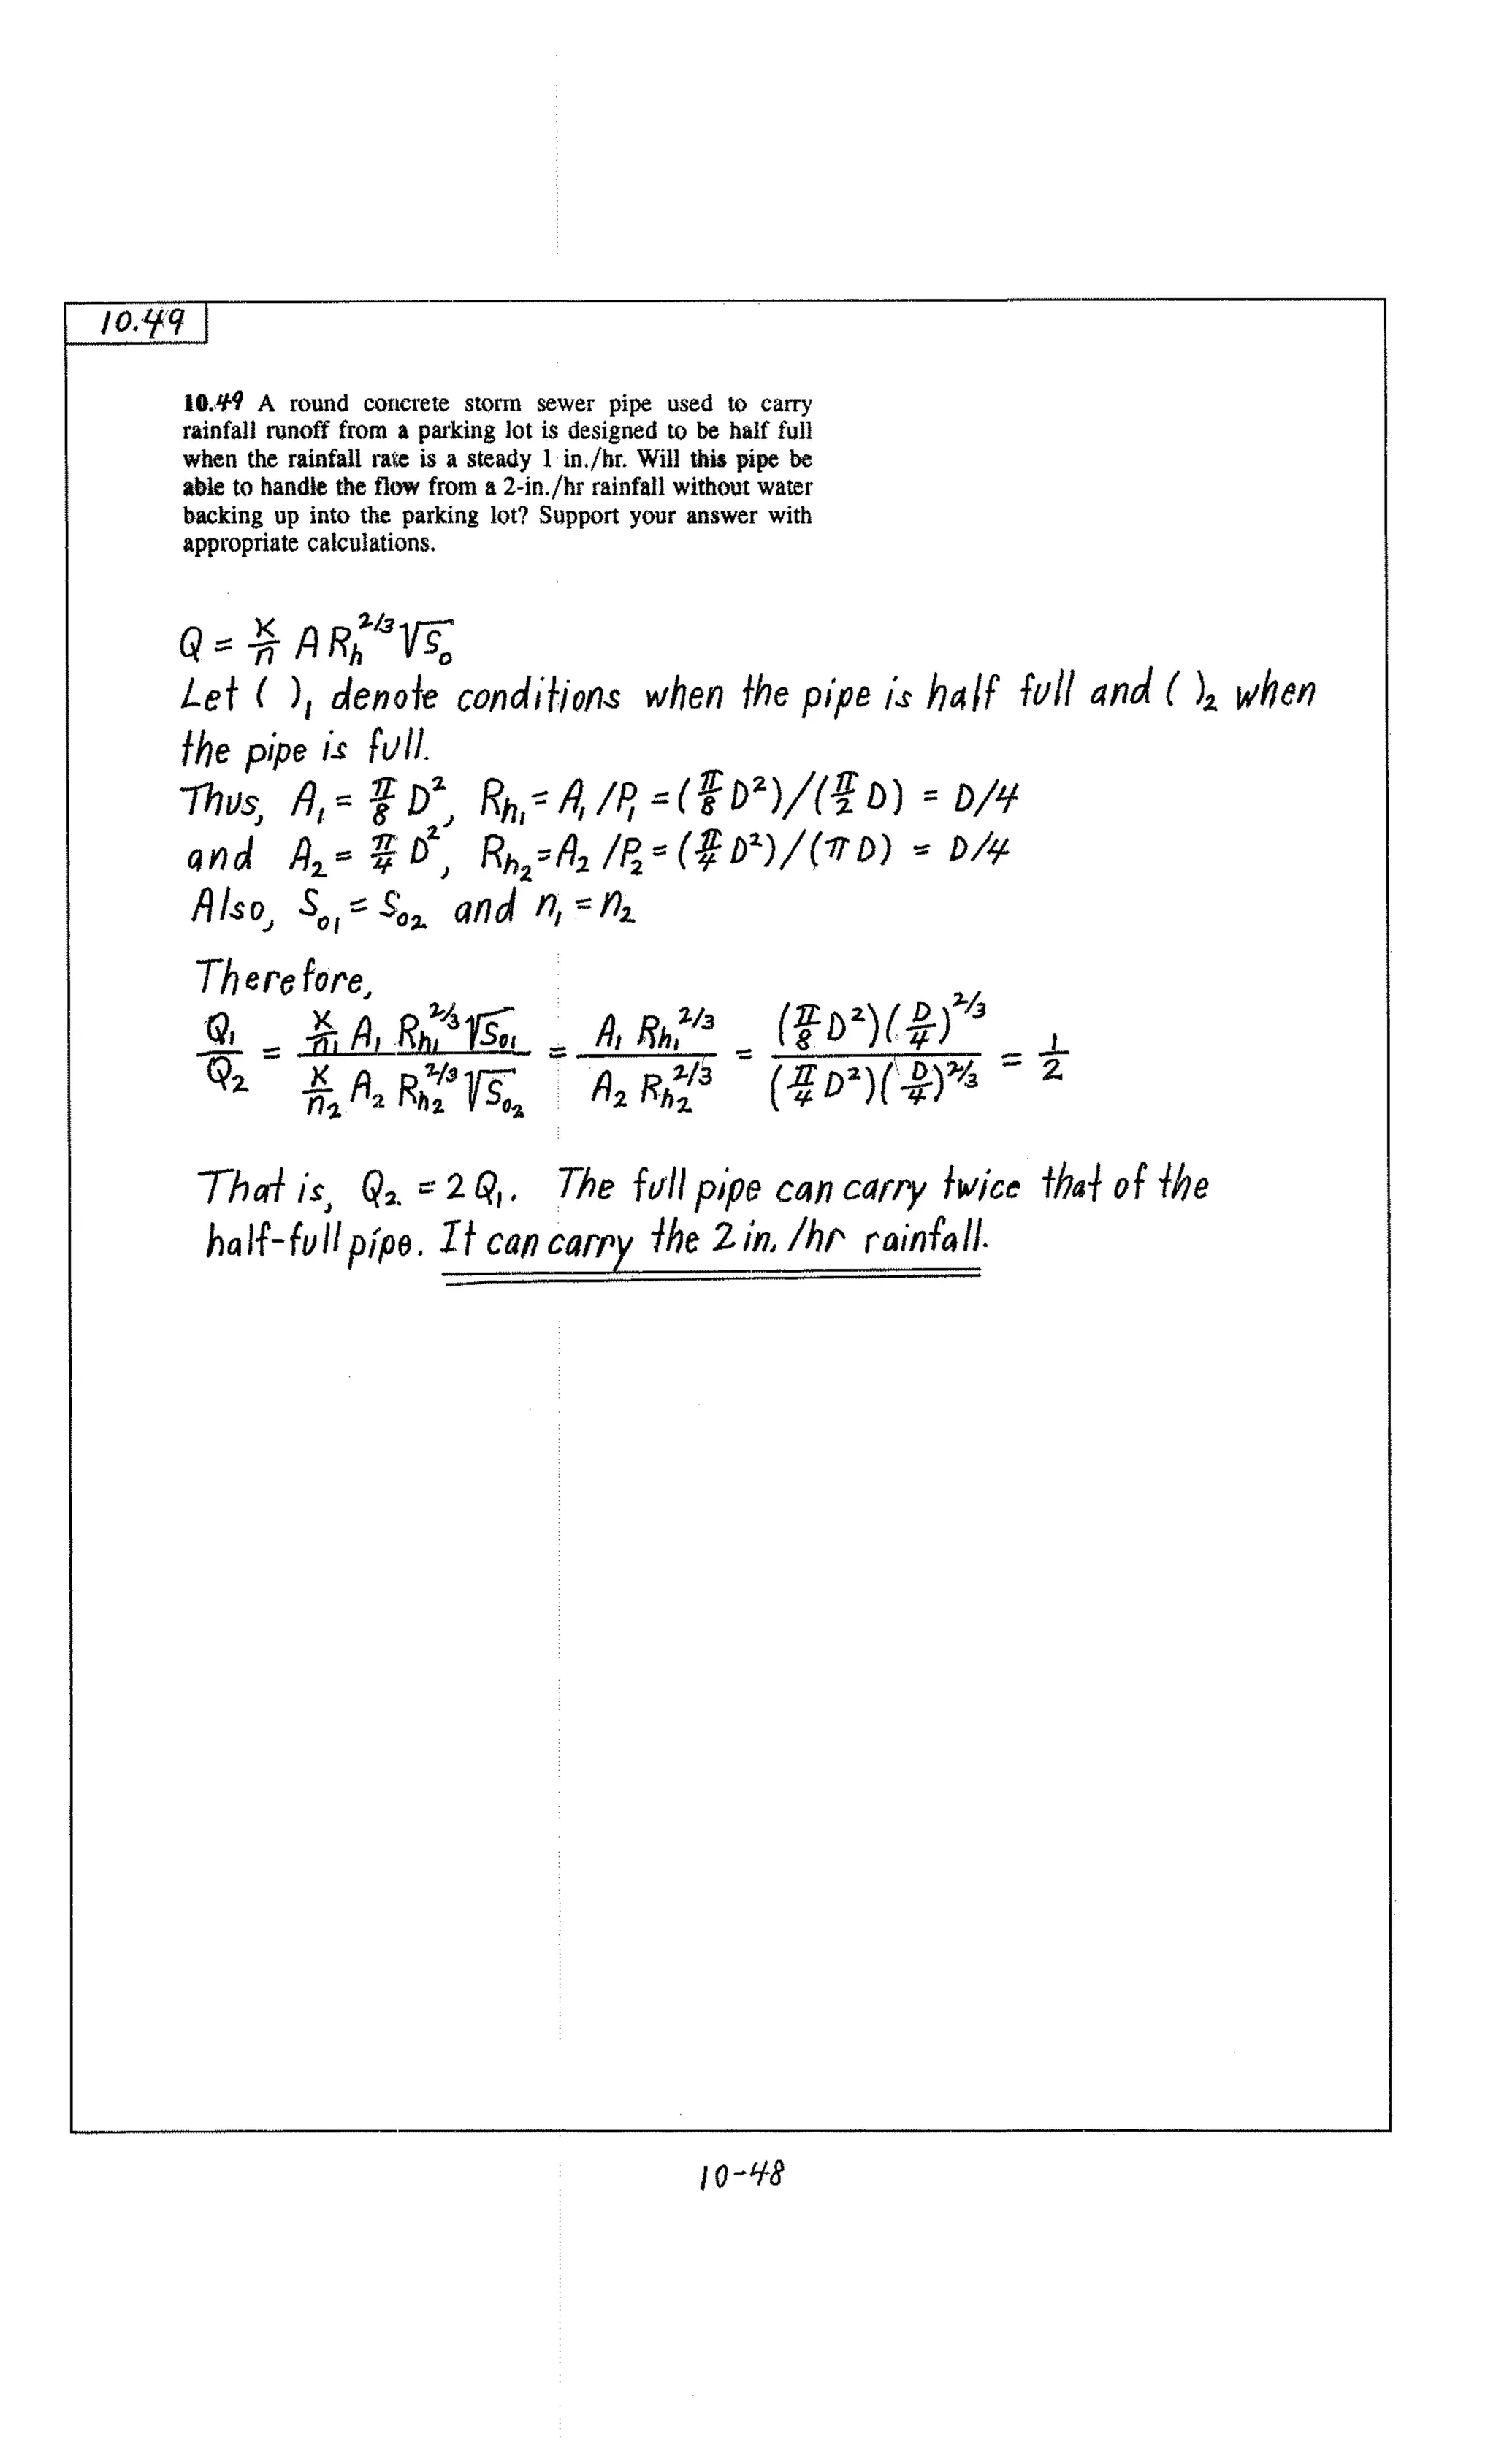 10.49
10.49 A round concrete storm sewer pipe used to carry
rainfall runoff from a parking lot is designed to be half full
when the rainfall rate is a steady 1 in./hr. Will this pipe be
able to handle the flow from a 2-in./hr rainfall without water
backing up into the parking lot? Support your answer with
appropriate calculations.
Q = K/n A R_h^2/3 √S_0
Let ( )_1 denote conditions when the pipe is half full and ( )_2 when
the pipe is full.
Thus, A_1 = π/8 D^2, R_h1 = A_1/P_1 = (π/8 D^2)/(π/2 D) = D/4
and A_2 = π/4 D^2, R_h2 = A_2/P_2 = (π/4 D^2)/(π D) = D/4
Also, S_01 = S_02 and n_1 = n_2
Therefore,
Q_1/Q_2 = (K/n_1 A_1 R_h1^2/3 √S_01)/(K/n_2 A_2 R_h2^2/3 √S_02) = (A_1 R_h1^2/3)/(A_2 R_h2^2/3) = ((π/8 D^2)(D/4)^2/3)/((π/4 D^2)(D/4)^2/3) = 1/2
That is, Q_2 = 2 Q_1. The full pipe can carry twice that of the
half-full pipe. It can carry the 2 in./hr rainfall.
10-48